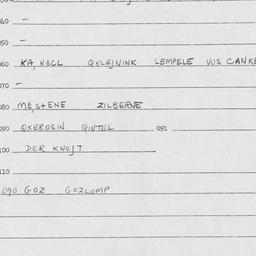 040 -
050 -
060 KA,N3GL QKLEJNINK LEMPELE VOS CANKE
070 -
080 ME,STENE ZILBERNE
090 QKEROSIN QINTEL 091
100 DER KNOJT
110
090 GOZ GOZLOMP